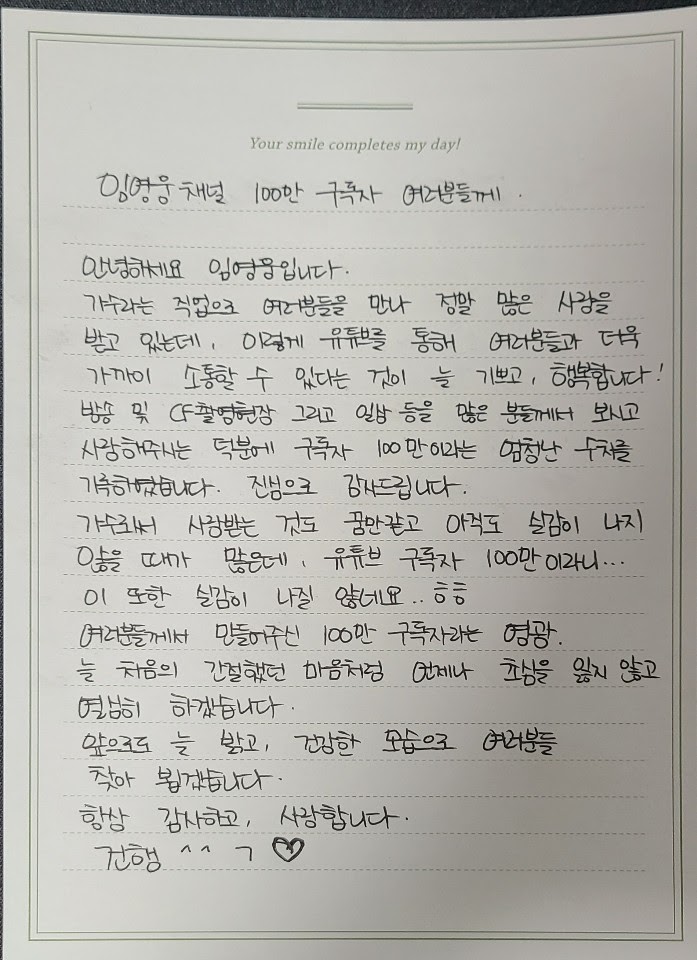 Your smile completes my day!
임영웅 채널 100만 구독자 여러분들께.
안녕하세요 임영웅입니다.
가수라는 직업으로 여러분들을 만나 정말 많은 사랑을
받고 있는데, 이렇게 유튜브를 통해 여러분들과 더욱
가까이 소통할 수 있다는 것이 늘 기쁘고, 행복합니다!
방송 및 CF촬영현장 그리고 일상 등을 많은 분들께서 보시고
사랑해주시는 덕분에 구독자 100만이라는 엄청난 수치를
기록하였습니다. 진심으로 감사드립니다.
가수로써 사랑받는 것도 꿈만같고 아직도 실감이 나지
않을 때가 많은데, 유튜브 구독자 100만이라니...
이 또한 실감이 나질 않네요.. ㅎㅎ
여러분들께서 만들어주신 100만 구독자라는 영광.
늘 처음의 간절했던 마음처럼 언제나 초심을 잃지 않고
열심히 하겠습니다.
앞으로도 늘 밝고, 건강한 모습으로 여러분들
찾아 뵙겠습니다.
항상 감사하고, 사랑합니다.
건행 ^^ ㄱ ♡